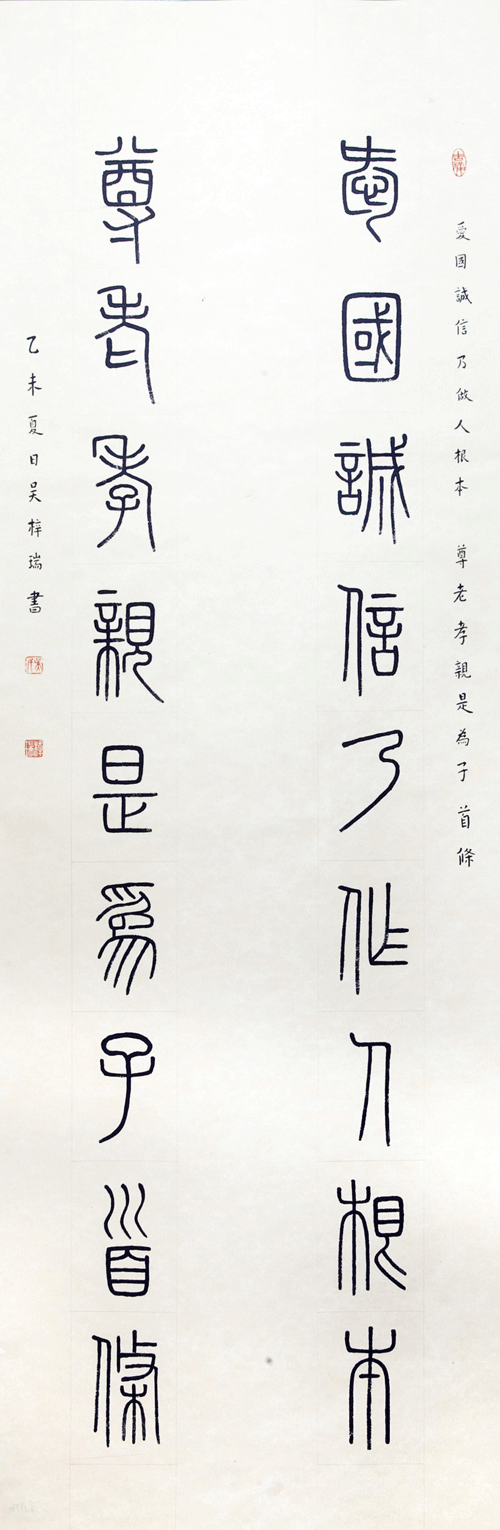 愛國誠信乃做人根本 尊老孝親是為子首條
愛國誠信乃作人根本
尊老孝親是爲子首條
乙未夏日吴梓瑞書